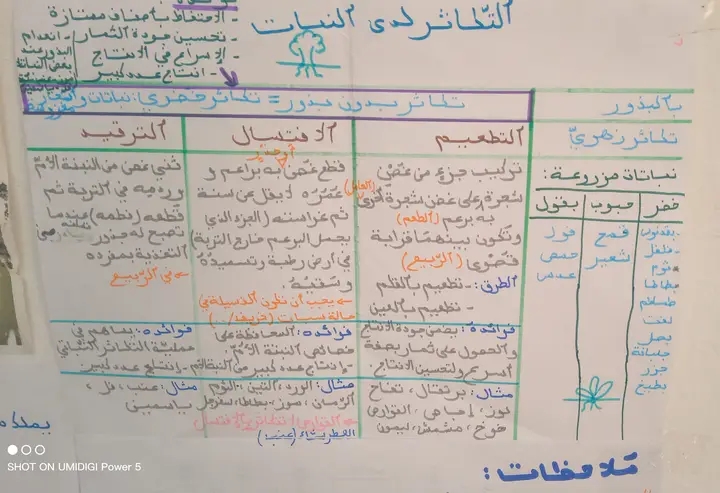 التكاثر لدى النبات
- الاحتفاظ بأصناف ممتازة
- تحسين جودة الثمار
- الإسراع في الانتاج
- انتاج عدد كبير
- انعدام
البذور عند
بعض النباتات
بالبذور
تكاثر بدون بذور = تكاثر خضري: نباتات و
تكاثر زهري
نباتات مزروعة:
خضر
حبوب
بقول
بقدونس
فلفل
ثوم
بطاطا
طماطم
لفت
بصل
جلبانة
جزر
بطيخ
قمح
شعير
فول
حمص
عدس
التطعيم
تركيب جزء من غصن
شجرة على غصن شجرة أخرى
به برعم (الطعم)
وتكون بينهما قرابة
قصوى (الربيع)
الطرق: - تطعيم بالقلم
- تطعيم بالعين
فوائده: يضمن جودة الانتاج
والحصول على ثمار بصفة
أسرع ولتحسين الانتاج.
مثال: برتقال، تفاح
لوز، إجاص، القوارص
خوخ، مشمش، ليمون
الافتسال
قطع غصن به براعم و
عمره لا يقل عن سنة
ثم غراسته (الجزء الذي
يحمل البرعم خارج التربة)
في أرض رطبة وتسميده
وسقيه.
← يجب أن تكون الفسيلة في
حالة سبات (خريف/
فوائده: المحافظة على
خصائص النبتة الأم.
- انتاج عدد كبير من النباتات
مثال: الورد، التين، الثوم
الرمان، موز، بطاطا،
(عنب)
الترقيد
ثني غصن من النبتة الأم
وردمه في التربة ثم
قطعه (فطمه) عندما
تصبح له جذور
التغذية بمفرده
← في الربيع
فوائده: يساهم في
عملية التكاثر النباتي
- انتاج عدد كبير.
مثال: عنب، فل،
ياسمين
ملاحظات:
SHOT ON UMIDIGI Power 5